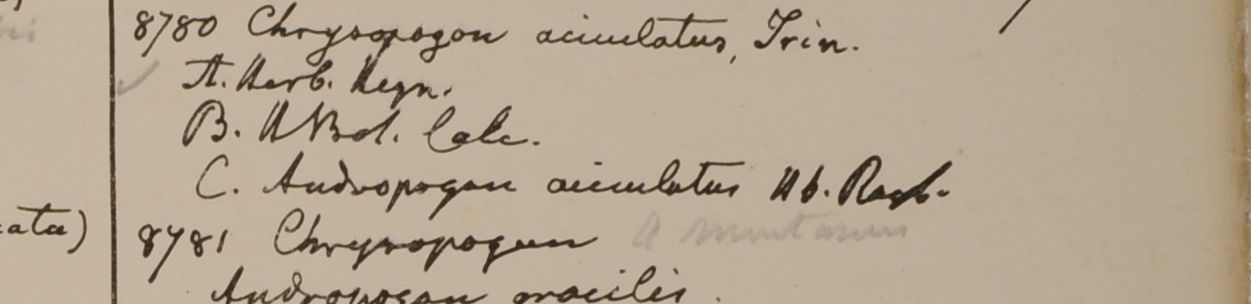 8780 Chrysopogon aciculatus, Trin.
A. Herb. Heyn.
B. H Bot. Calc.
C. Andropogon aciculatus Hb. Roxb.
cata)
8781 Chrysopogon A montanus
Andropogon gracilis.